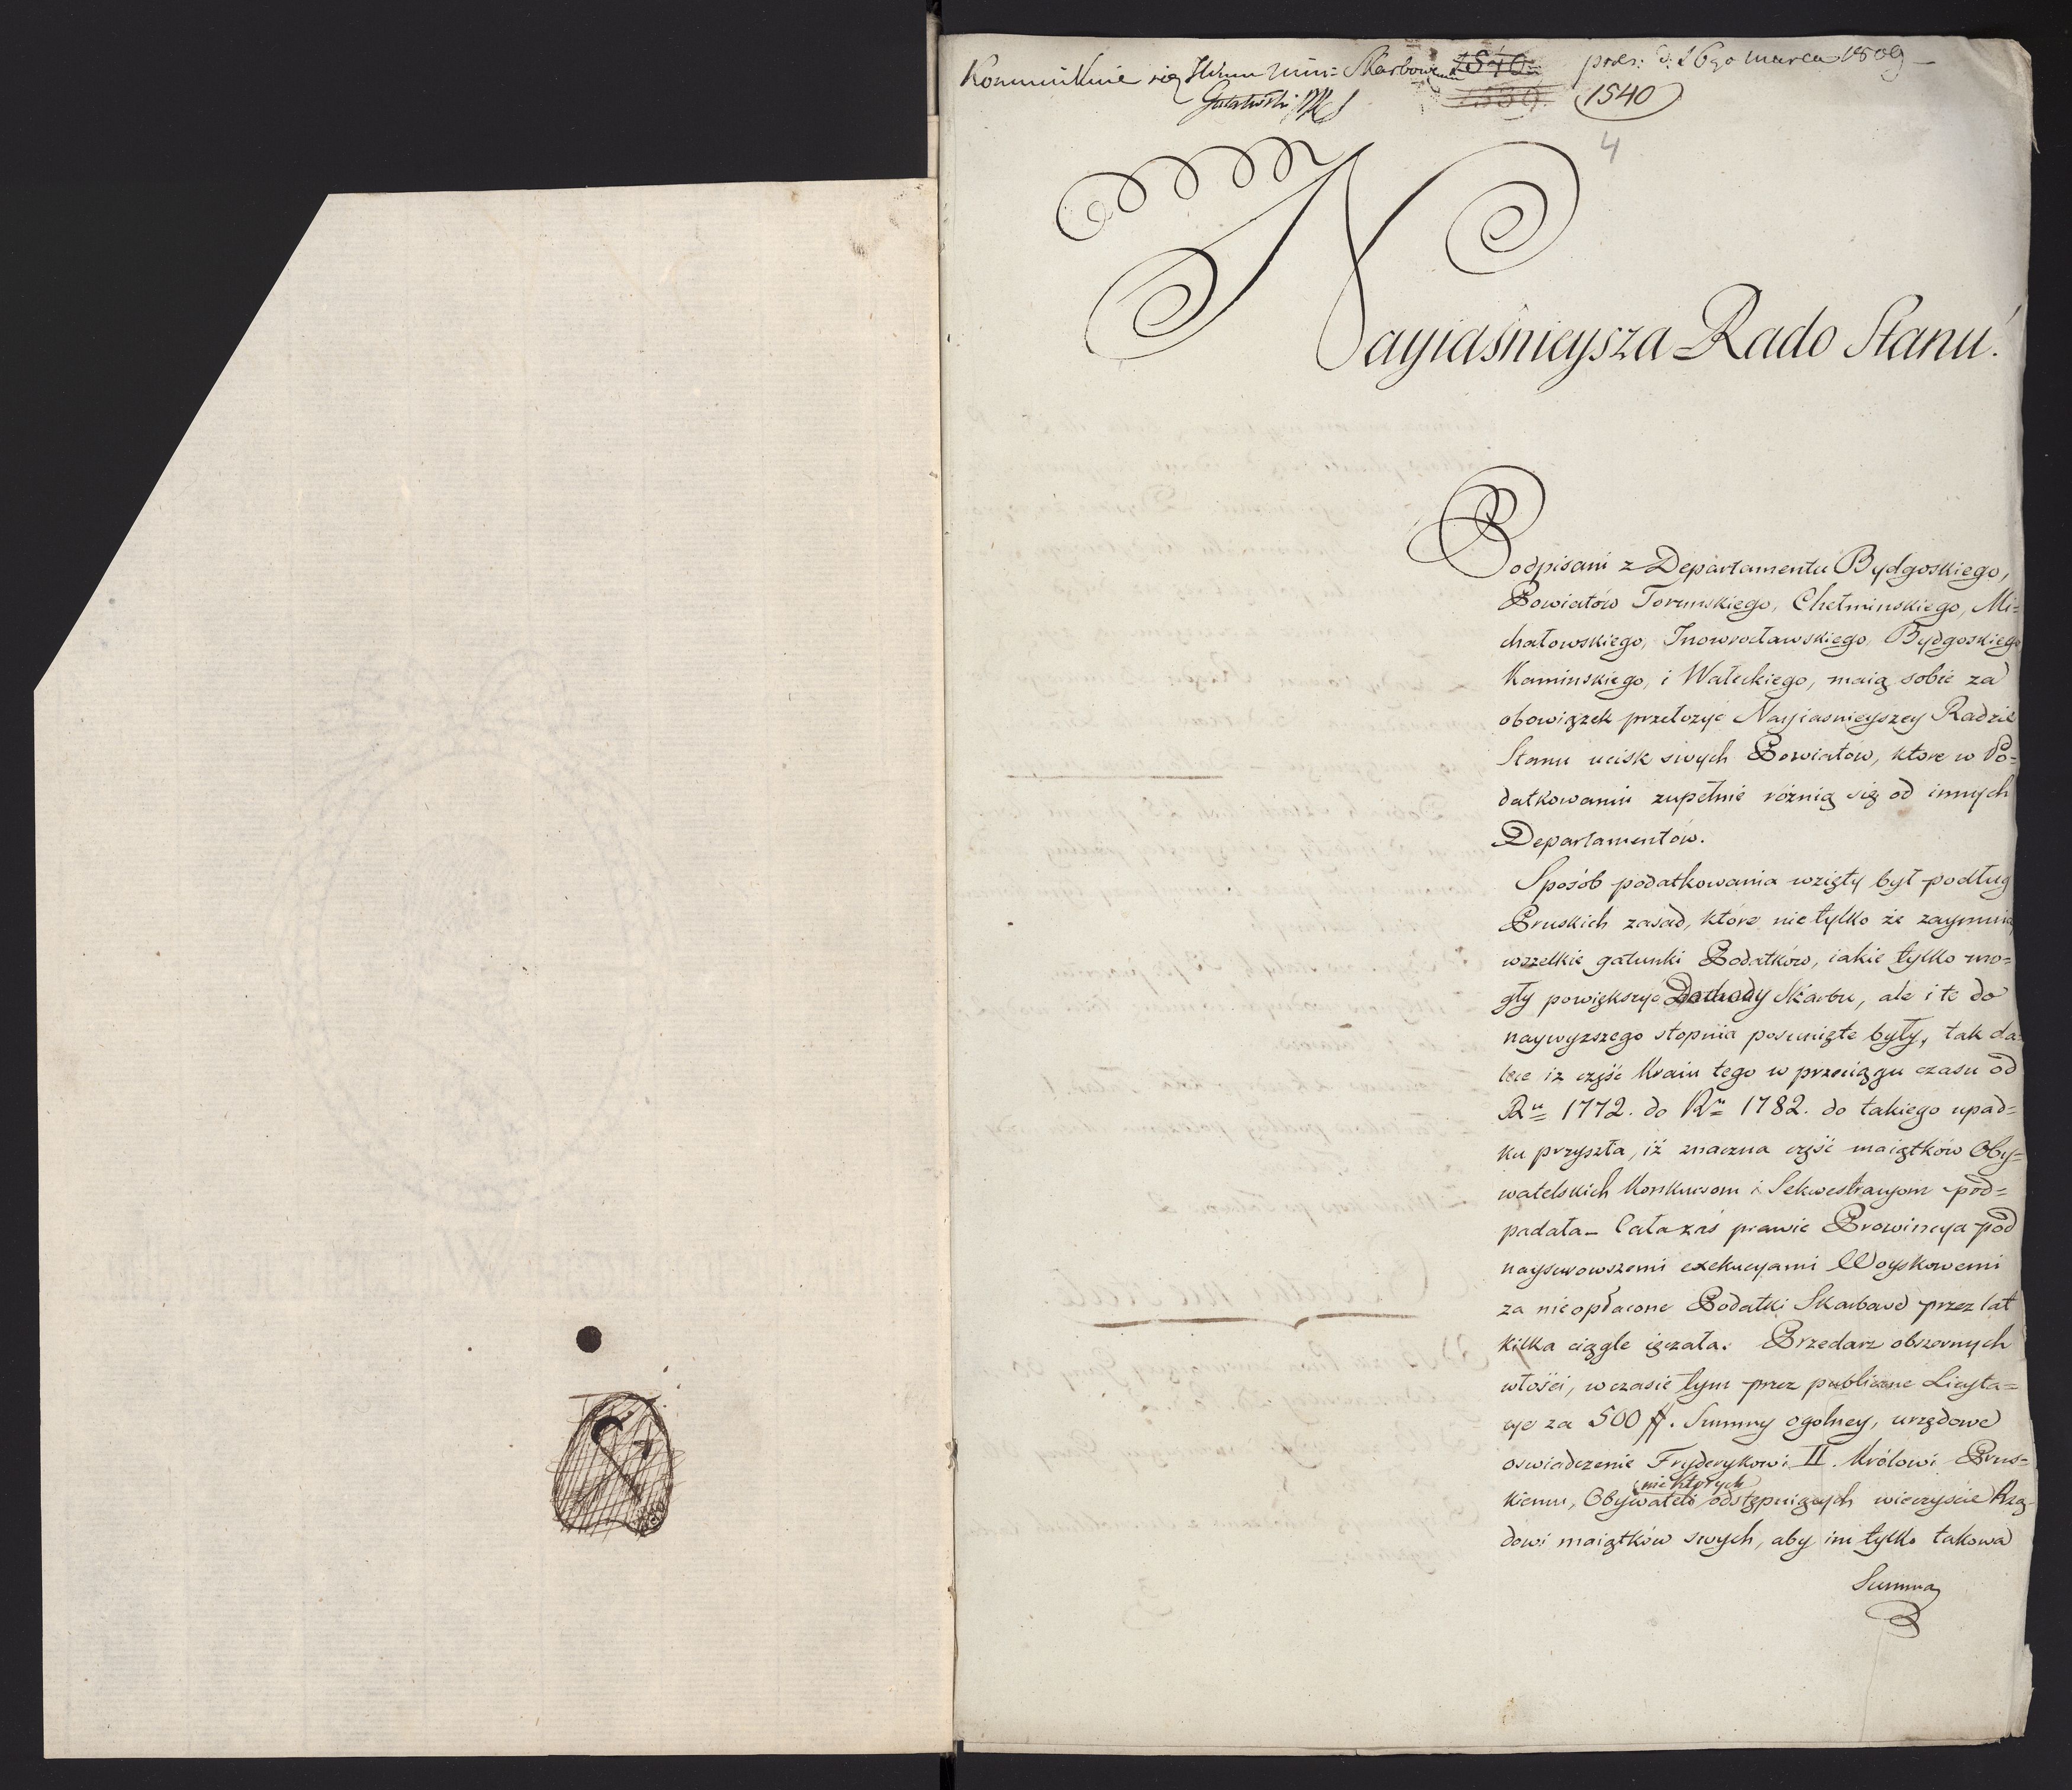 Kommunikuie się JWmu Min: Skarbowemu 1540 pres: d: 16go marca 1809
1540
4
Nayiaśnieysza Rado Stanu!
Podpisani z Departamentu Bydgoskiego,
Powiatów Torunskiego, Chełminskiego, Mi=
chałowskiego, Inowrocławskiego, Bydgoskiego
Kaminskiego, i Wałeckiego, maią sobie za
obowiązek przełożyć Nayiasnieyszey Radzie
Stanu ucisk swych Powiatow, ktore w Po=
datkowaniu zupełnie różnią się od innych
Departamentów.
Sposób podatkowania wzięty był podług
Pruskich zasad, które nie tylko że zaymuią
wszelkie gatunki Podatków, iakie tylko mo=
gły powiększyć Dochody Skarbu, ale i te do
naywyzszego stopnia posunięte były, tak da=
lece iz część Kraiu tego w przeciągu czasu od
Ru 1772. do Ru 1782. do takiego upad=
ku przyszła, iż znaczna część maiątków Oby=
watelskich Konkursom i Sekwestracyom pod=
padała_ Cała zaś prawie Prowincya pod
naysurowszemi exekucyami Woyskowemi
za nieopłacone Podatki Skarbowe przez lat
kilka ciągle ięczała. Przedarz obszernych
włości, w czasie tym przez publiczne Licyta=
cye za 500 ff. Summy ogolney, urzędowe
oswiadczenie Fryderykowi II. Królowi Prus=
niektorych
kiemu, Obywateli odstępuiących wieczyscie Rzą=
dowi maiątków swych, aby im tylko takowa
Summa